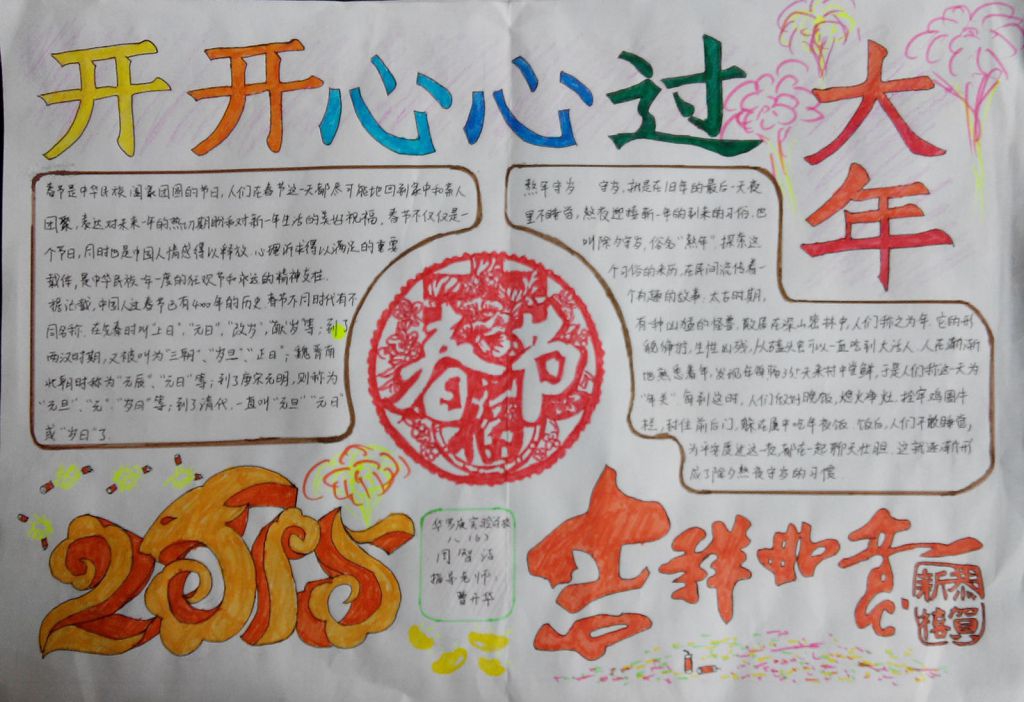 开开心心过大年
春节是中华民族阖家团圆的节日,人们在春节这一天都尽可能地回到家中和亲人
团聚,表达对未来一年的热切期盼和对新一年生活的美好祝福。春节不仅仅是一
个节日,同时也是中国人情感得以释放、心理诉求得以满足的重要
载体,是中华民族一年一度的狂欢节和永远的精神支柱。
据记载,中国人过春节已有4000年的历史,春节不同时代有不
同名称。在先秦时叫“上日”、“元日”、“改岁”、“献岁”等;到了
两汉时期,又被叫为“三朝”、“岁旦”、“正日”;魏晋南
北朝时称为“元辰”、“元日”等;到了唐宋元明,则称为
“元旦”、“元”、“岁日”等;到了清代,一直叫“元旦”“元日”
或“岁日”了
熬年守岁 守岁,就是在旧年的最后一天夜
里不睡觉,熬夜迎接新一年的到来的习俗,也
叫除夕守岁,俗名“熬年”。探索这
个习俗的来历,在民间流传着一
个有趣的故事:太古时期,
有种凶猛的怪兽,散居在深山密林中,人们称之为年。它的形
貌狰狞,生性凶残,从磕头虫可以一直吃到大活人。人们渐渐
地熟悉着年,发现每隔365天来村中尝鲜,于是人们称这一天为
“年关”每到这时,人们做好晚饭,熄火净灶,拴牢鸡圈牛
栏,封住前后门,躲在屋中吃年夜饭。饭后,人们不敢睡觉,
为平安度过这一夜,都在一起聊天壮胆。这就逐渐形
成了除夕熬夜守岁的习惯。
春节
福
2015
华罗庚实验学校
八(6)
周智洁
指导老师:
曹开华
吉祥如意
恭贺新禧